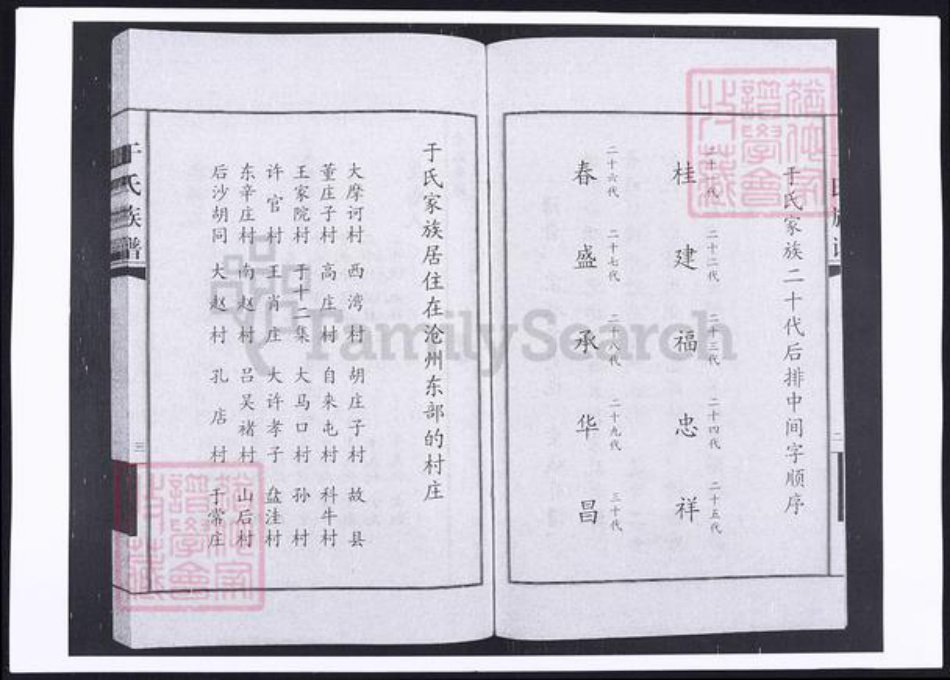 于氏家族二十代后排中间字顺序
桂 建 福 忠 祥
二十二代 二十三代 二十四代 二十五代
春 盛 承 华 昌
二十六代 二十七代 二十八代 二十九代 三十代
二
于氏家族居住在沧州东部的村庄
大摩诃村 西湾村 胡庄子村 故县
董庄子村 高庄村 自来屯村 科牛村
王家院村 于十二集 大马口村 孙村
许官村 王肖庄 大许孝子 盘洼村
东辛庄村 南赵村 吕吴褚村 山后村
后沙胡同 大赵村 孔店村 于常庄
于氏族谱
三
FamilySearch